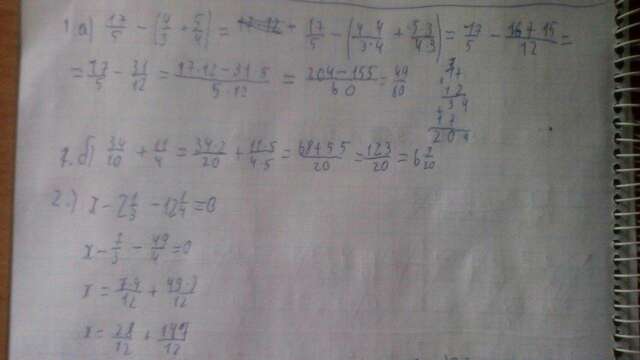 1. а) 17/5 - (4/3 + 5/4) = 17/5 - (4·4/3·4 + 5·3/4·3) = 17/5 - 16+15/12 =
= 17/5 - 31/12 = 17·12-31·5/5·12 = 204-155/60 = 49/60
17
12
34
+17
204
б) 34/10 + 11/4 = 34·2/20 + 11·5/4·5 = 68+55/20 = 123/20 = 6 3/20
2.) x - 2 1/3 - 12 1/4 = 0
x - 7/3 - 49/4 = 0
x = 7·4/12 + 49·3/12
x = 28/12 + 147/12